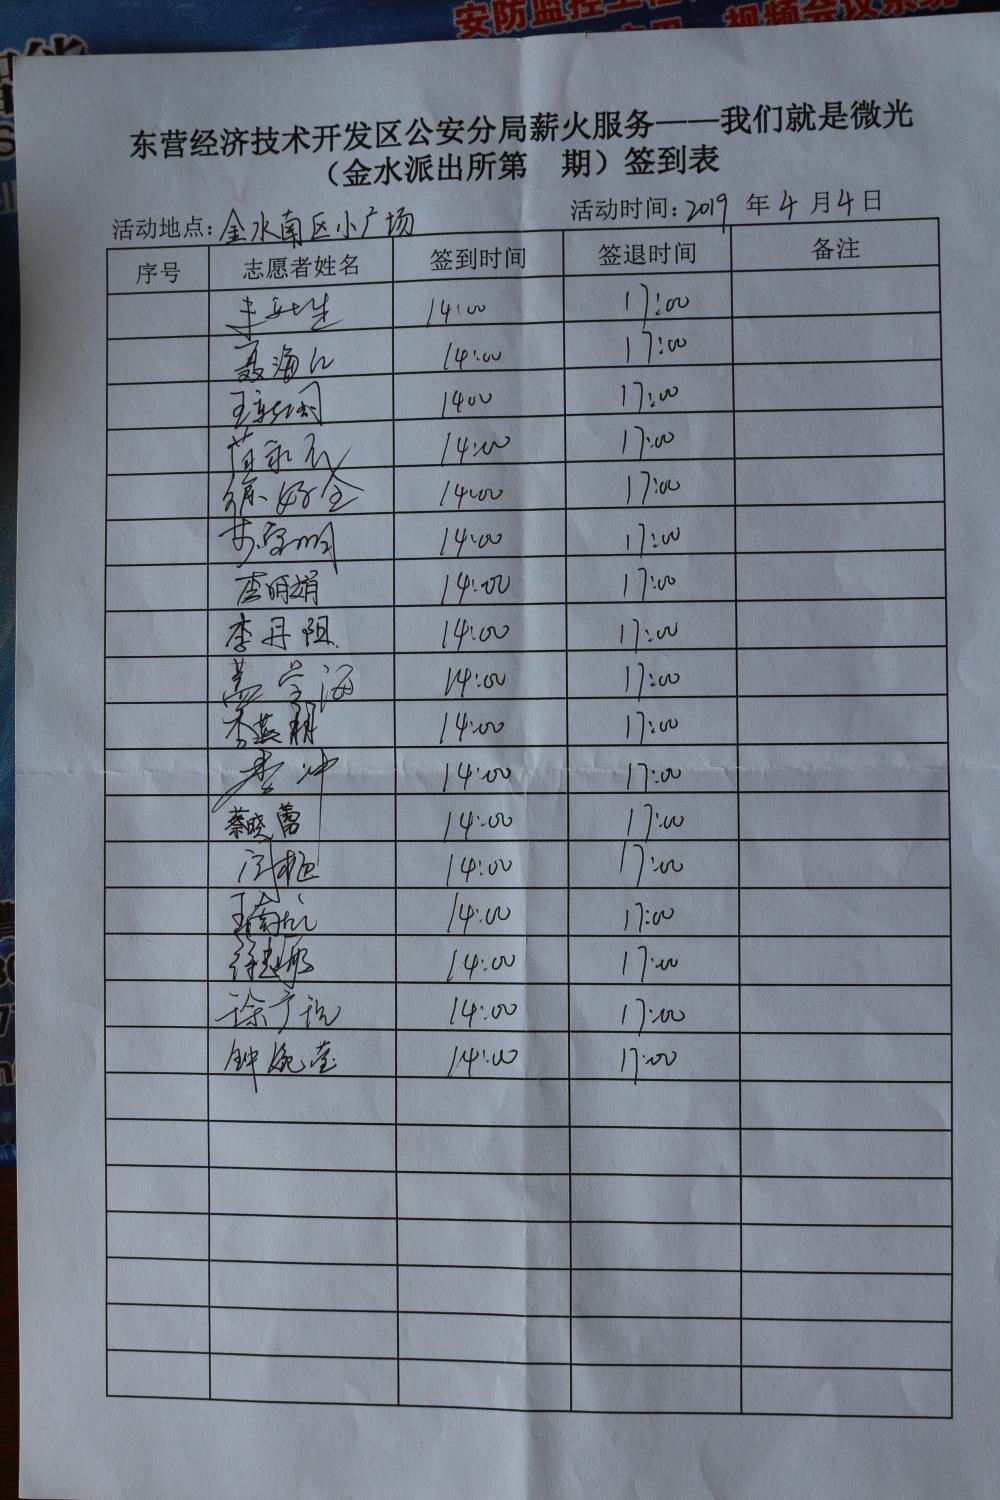 安防监控工程
视频会议系统
东营经济技术开发区公安分局薪火服务——我们就是微光
（金水派出所第 期）签到表
活动地点：金水南区小广场 活动时间：2019 年 4 月 4 日
序号 志愿者姓名 签到时间 签退时间 备注
14:00 17:00
聂海 14:00 17:00
王 1400 17:00
14:00 17:00
徐好全 14:00 17:00
明 14:00 17:00
李明娟 14:00 17:00
李丹阳 14:00 17:00
盖学海 14:00 17:00
李燕 14:00 17:00
李冲 14:00 17:00
蔡晓蕾 14:00 17:00
14:00 17:00
王南 14:00 17:00
徐 14:00 17:00
徐广 14:00 17:00
钟婉莹 14:00 17:00